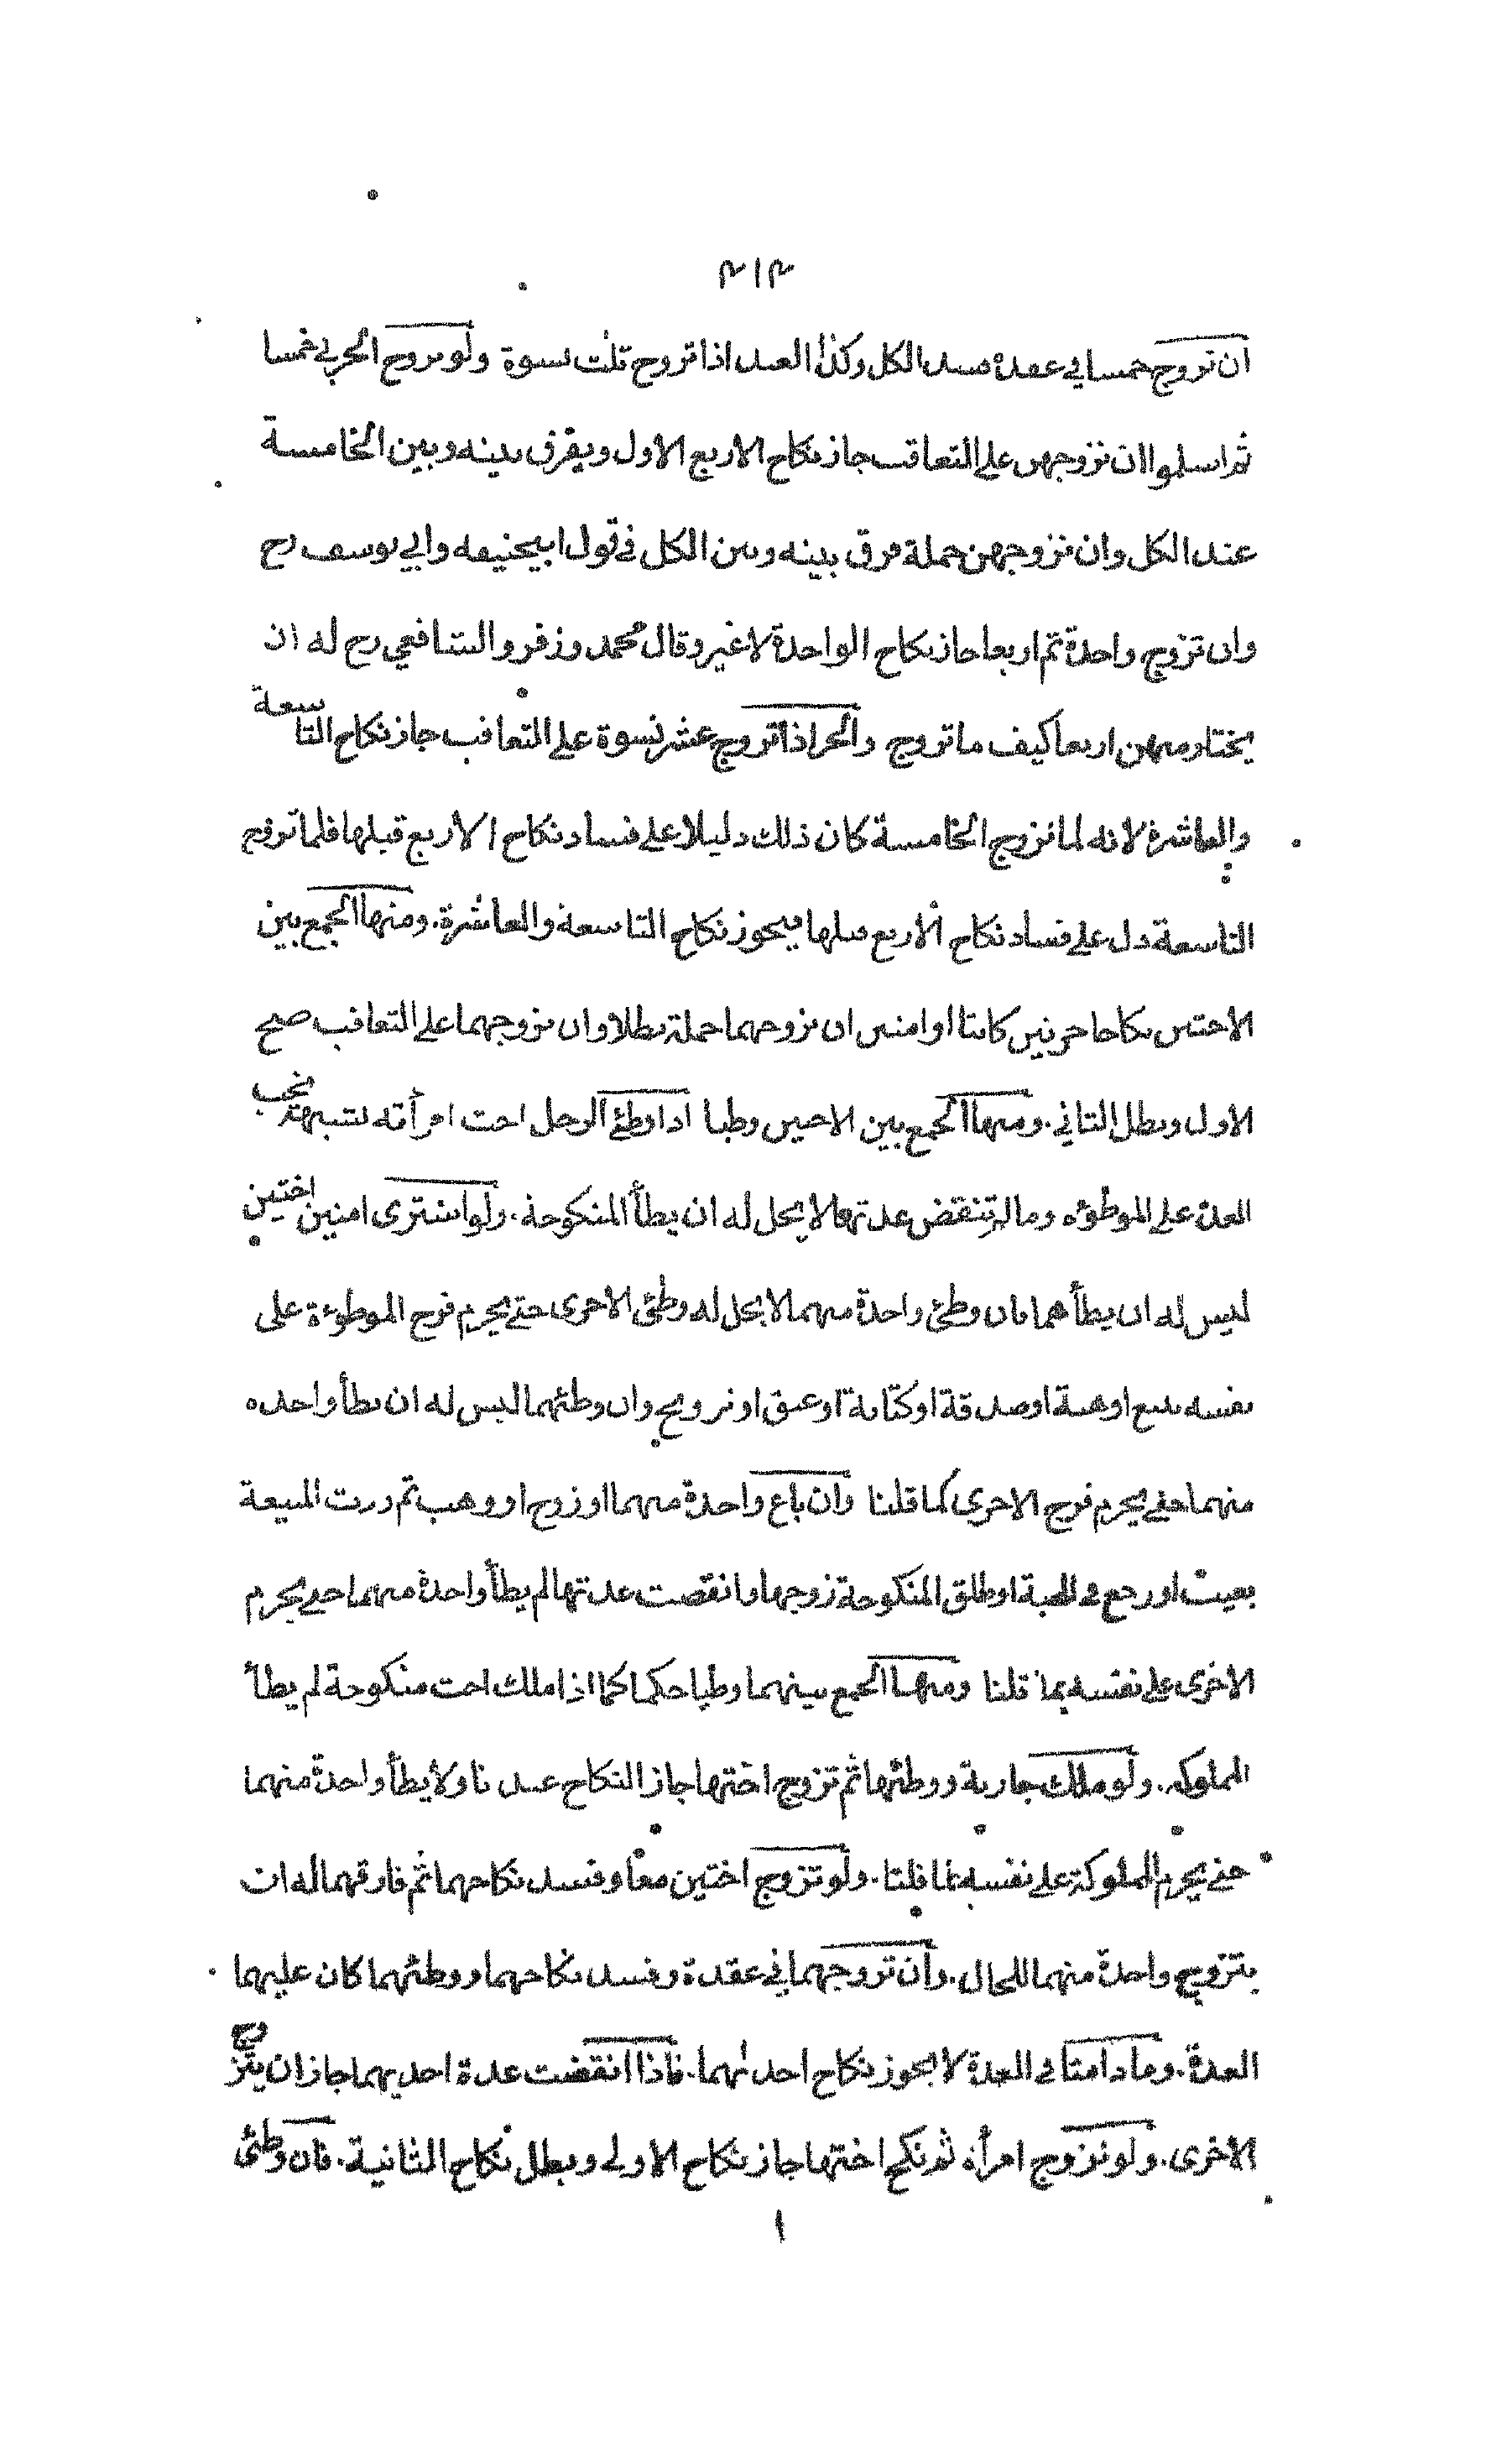 ٣١٣
ان تزوج خمسا في عقدة فسد الكل وكذا العبد اذا تزوج ثلث نسوة ولو تزوج الحربي خمسا
ثم اسلموا ان تزوجهن على التعاقب جاز نكاح الاربع الاول ويفرق بينه وبين الخامسة
عند الكل وان تزوجهن جملة فرق بينه وبين الكل في قول ابيحنيفه وابي يوسف رح
وان تزوج واحدة ثم اربعا جاز نكاح الواحدة لا غير وقال محمد وزفر والشافعي رح له ان
يختار منهن اربعا كيف ما تزوج والحر اذا تزوج عشر نسوة على التعاقب جاز نكاح التاسعة
والعاشرة لانه لما تزوج الخامسة كان ذلك دليلا على فساد نكاح الاربع قبلها فلما تزوج
التاسعة دل على فساد نكاح الأربع قبلها فيجوز نكاح التاسعة والعاشرة. ومنها الجمع بين
الاختين نكاحا حرتين كانتا او امتين ان تزوجهما جملة بطلا وان تزوجهما على التعاقب صح
الاول وبطل الثاني. ومنها الجمع بين الاختين وطيا اذا وطئ الرجل اخت امرأته بشبهة تجب
العدة على الموطوءه وما لم تنقض عدتها لا يحل له ان يطأ المنكوحة. ولو اشترى امتين اختين
ليس له ان يطأهما فان وطئ واحدة منهما لا يحل له وطئ الاخرى حتى يحرم فرج الموطوءة على
نفسه ببيع او هبة او صدقة او كتابة او عتق او تزويج وان وطئهما ليس له ان يطأ واحده
منهما حتى يحرم فرج الاخرى كما قلنا وان باع واحدة منهما او زوج او وهب ثم ردت المبيعة
بعيب او رجع في الهبة او طلق المنكوحة زوجها وانقضت عدتها لم يطأ واحدة منهما حتى يحرم
الاخرى على نفسه بما قلنا ومنها الجمع بينهما وطيا حكما كما اذا ملك اخت منكوحة لم يطأ
المملوكه. ولو ملك جارية ووطئها ثم تزوج اختها جاز النكاح عندنا ولا يطأ واحدة منهما
حتى يحرم المملوكة على نفسه بما قلنا. ولو تزوج اختين معا وفسد نكاحهما ثم فارقهما له ان
يتزوج واحدة منهما للحال. وان تزوجهما في عقدة وفسد نكاحهما ووطئهما كان عليهما
العدة. وما دامتا في العدة لا يجوز نكاح احدٰىهما. فاذا انقضت عدة احديهما جاز ان يتزوج
الاخرى. ولو تزوج امرأة ثم نكح اختها جاز نكاح الاولى وبطل نكاح الثانية. فان وطئ
ا